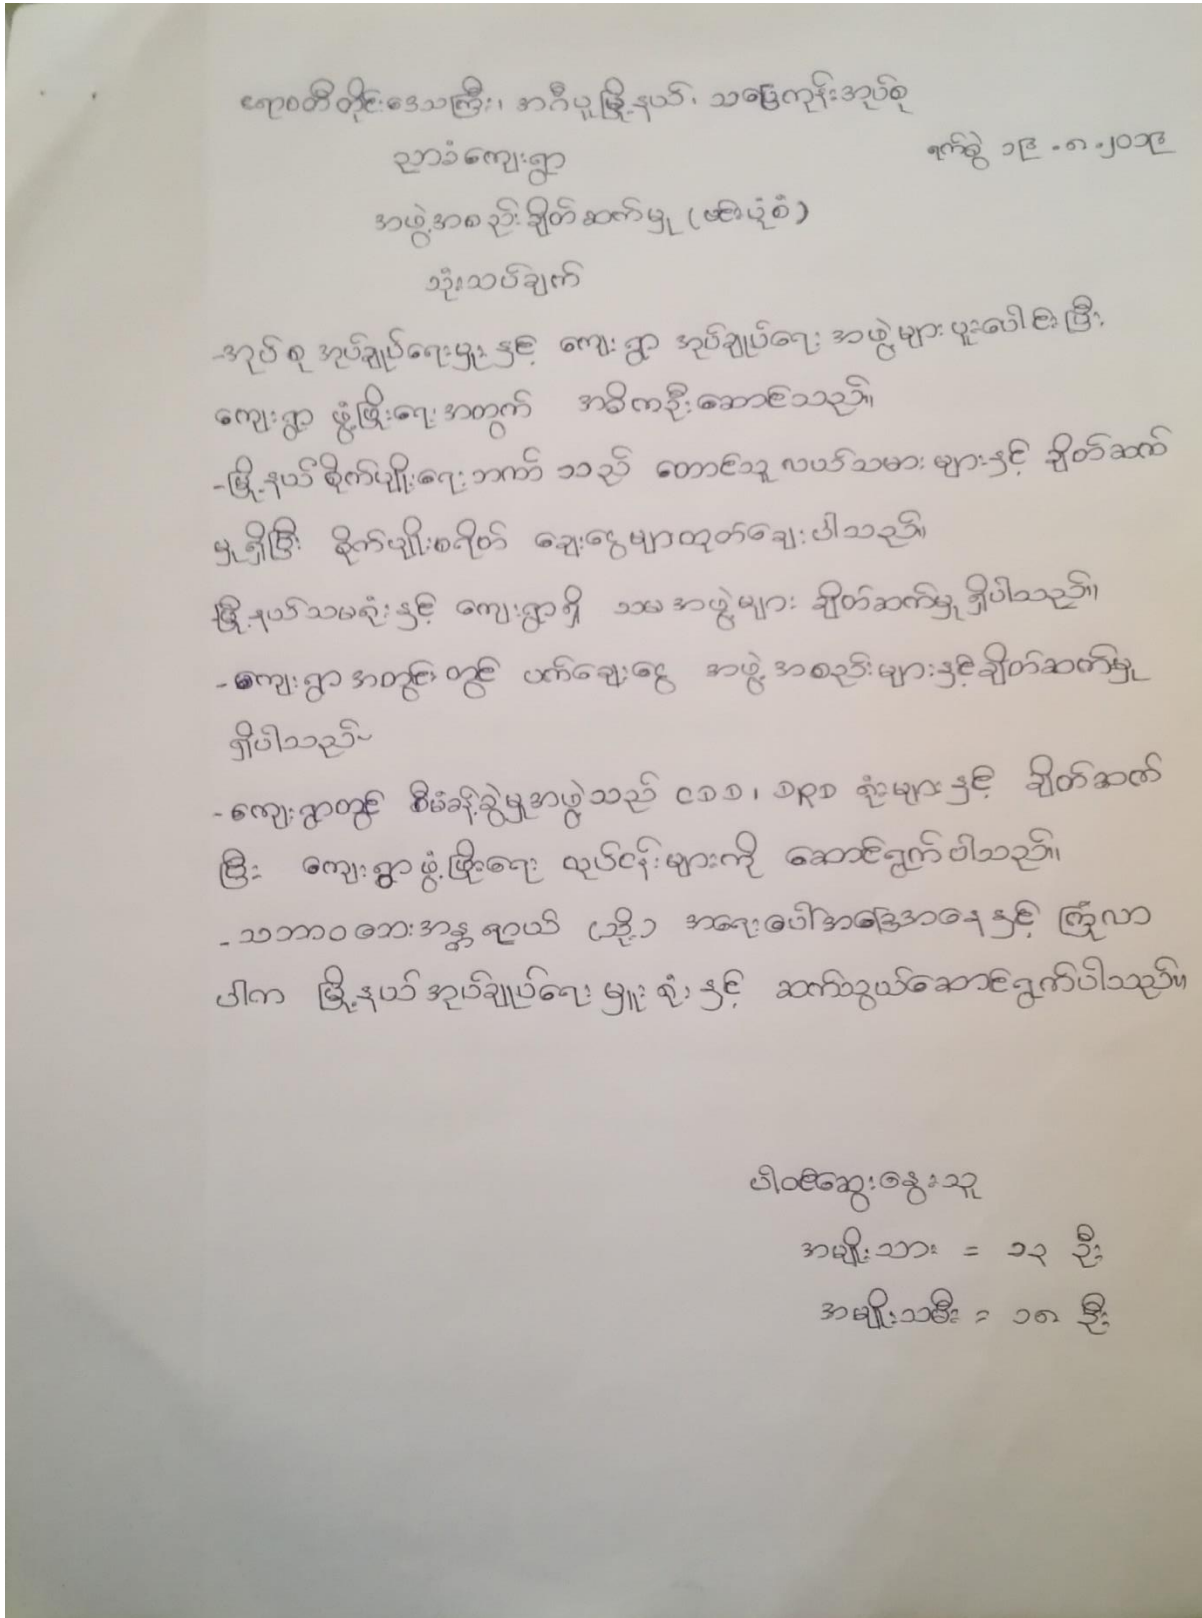 ဧရာဝတီတိုင်းဒေသကြီး၊ အင်္ဂပူမြို့နယ်၊ သပြေကုန်းအုပ်စု
ညာခံကျေးရွာ
ရက်စွဲ ၁၉.၈.၂၀၁၉
အဖွဲ့အစည်းချိတ်ဆက်မှု (ဗင်းပုံစံ)
သုံးသပ်ချက်
-အုပ်စု အုပ်ချုပ်ရေးမှူးနှင့် ကျေးရွာ အုပ်ချုပ်ရေး အဖွဲ့များပူးပေါင်းပြီး
ကျေးရွာ ဖွံ့ဖြိုးရေးအတွက် အဓိကဦးဆောင်သည်။
-မြို့နယ်စိုက်ပျိုးရေးဘဏ် သည် တောင်သူလယ်သမားများနှင့် ချိတ်ဆက်
မှုရှိပြီး စိုက်ပျိုးစရိတ် ချေးငွေများထုတ်ချေးပါသည်။
-မြို့နယ်သမရုံးနှင့် ကျေးရွာရှိ သမအဖွဲ့များ ချိတ်ဆက်မှုရှိပါသည်။
-ကျေးရွာအတွင်းတွင် ပက်ချေးငွေ အဖွဲ့အစည်းများနှင့်ချိတ်ဆက်မှု
ရှိပါသည်။
-ကျေးရွာတွင် စီမံခန့်ခွဲမှုအဖွဲ့သည် CDD၊ DRD ရုံးများနှင့် ချိတ်ဆက်
ပြီး ကျေးရွာဖွံ့ဖြိုးရေး လုပ်ငန်းများကို ဆောင်ရွက်ပါသည်။
-သဘာဝဘေးအန္တရာယ် (သို့) အရေးပေါ်အခြေအနေနှင့် ကြုံလာ
ပါက မြို့နယ်အုပ်ချုပ်ရေးမှူးရုံးနှင့် ဆက်သွယ်ဆောင်ရွက်ပါသည်။
ပါဝင်ဆွေးနွေးသူ
အမျိုးသား = ၁၃ ဦး
အမျိုးသမီး = ၁၈ ဦး